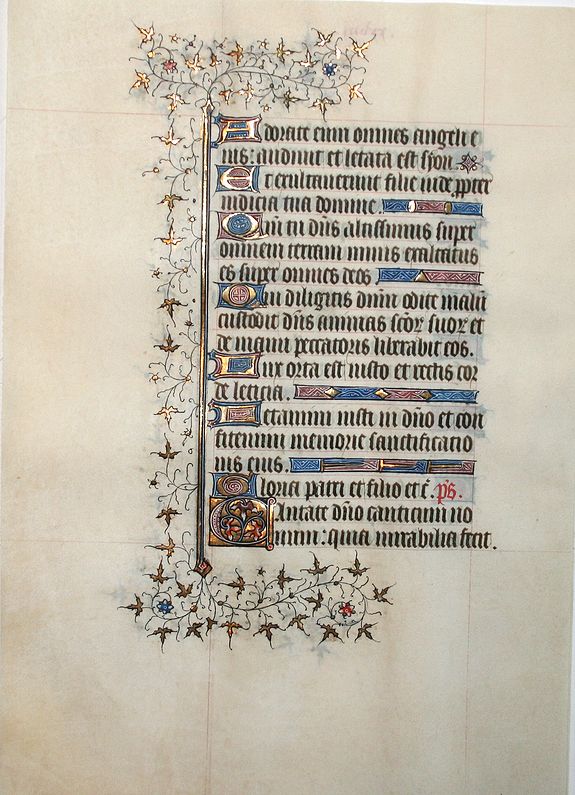 Adorate eum omnes angeli e
ius: audiuit et letata est syon.
Et exultauerunt filie iude. ꝓpter
iudicia tua domine.
Qm̄ tu dn̄s altissimus super
omnem terram nimis exaltatus
es super omnes deos
Qui diligitis dn̄m odite malū
custodit dn̄s animas scōꝝ suoꝝ et
de manu peccatoris liberabit eos.
Lux orta est iusto et rectis cor
de leticia.
Letamini iusti in dn̄o et con
fitemini memorie sanctificatio
nis eius.
Gloria patri et filio et c̄. ps̄.
Cantate dn̄o canticum no
uum: quia mirabilia fecit.